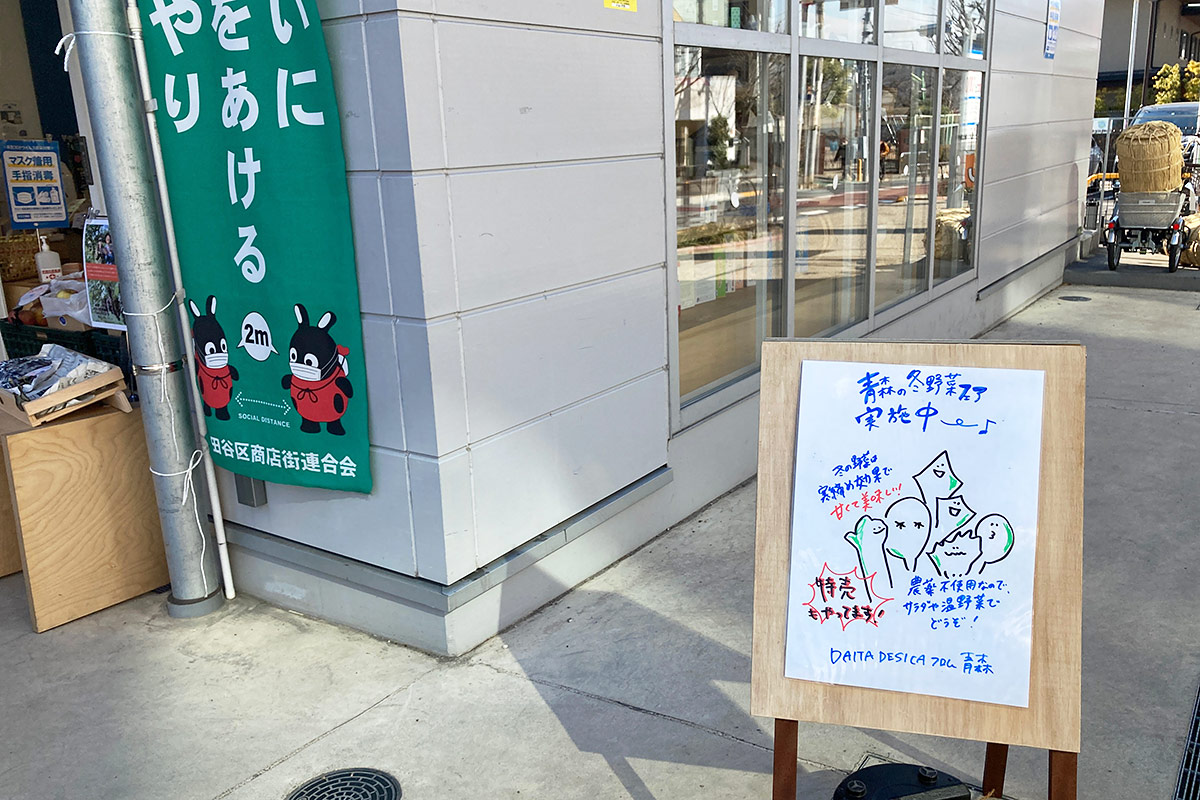 いに
をあける
やり
2m
SOCIAL DISTANCE
田谷区商店街連合会
マスク着用
手指消毒
青森の冬野菜フェア
実施中
冬の野菜は
寒締め効果で
甘くて美味しい!
特売
もやってます!
農薬不使用なので、
サラダや温野菜で
どうぞ!
DAITA DESICA フロム 青森